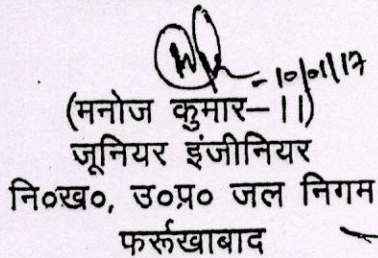 10/01/17
(मनोज कुमार-।।)
जूनियर इंजीनियर
नि०ख०, उ०प्र० जल निगम
फर्रूखाबाद